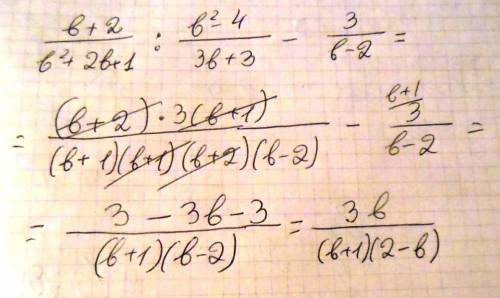 в+2 / в²+2в+1 : в²-4 / 3в+3 - 3 / в-2 =
= (в+2)·3(в+1) / (в+1)(в+1)(в+2)(в-2) - в+1 / 3 / в-2 =
= 3-3в-3 / (в+1)(в-2) = 3в / (в+1)(2-в)